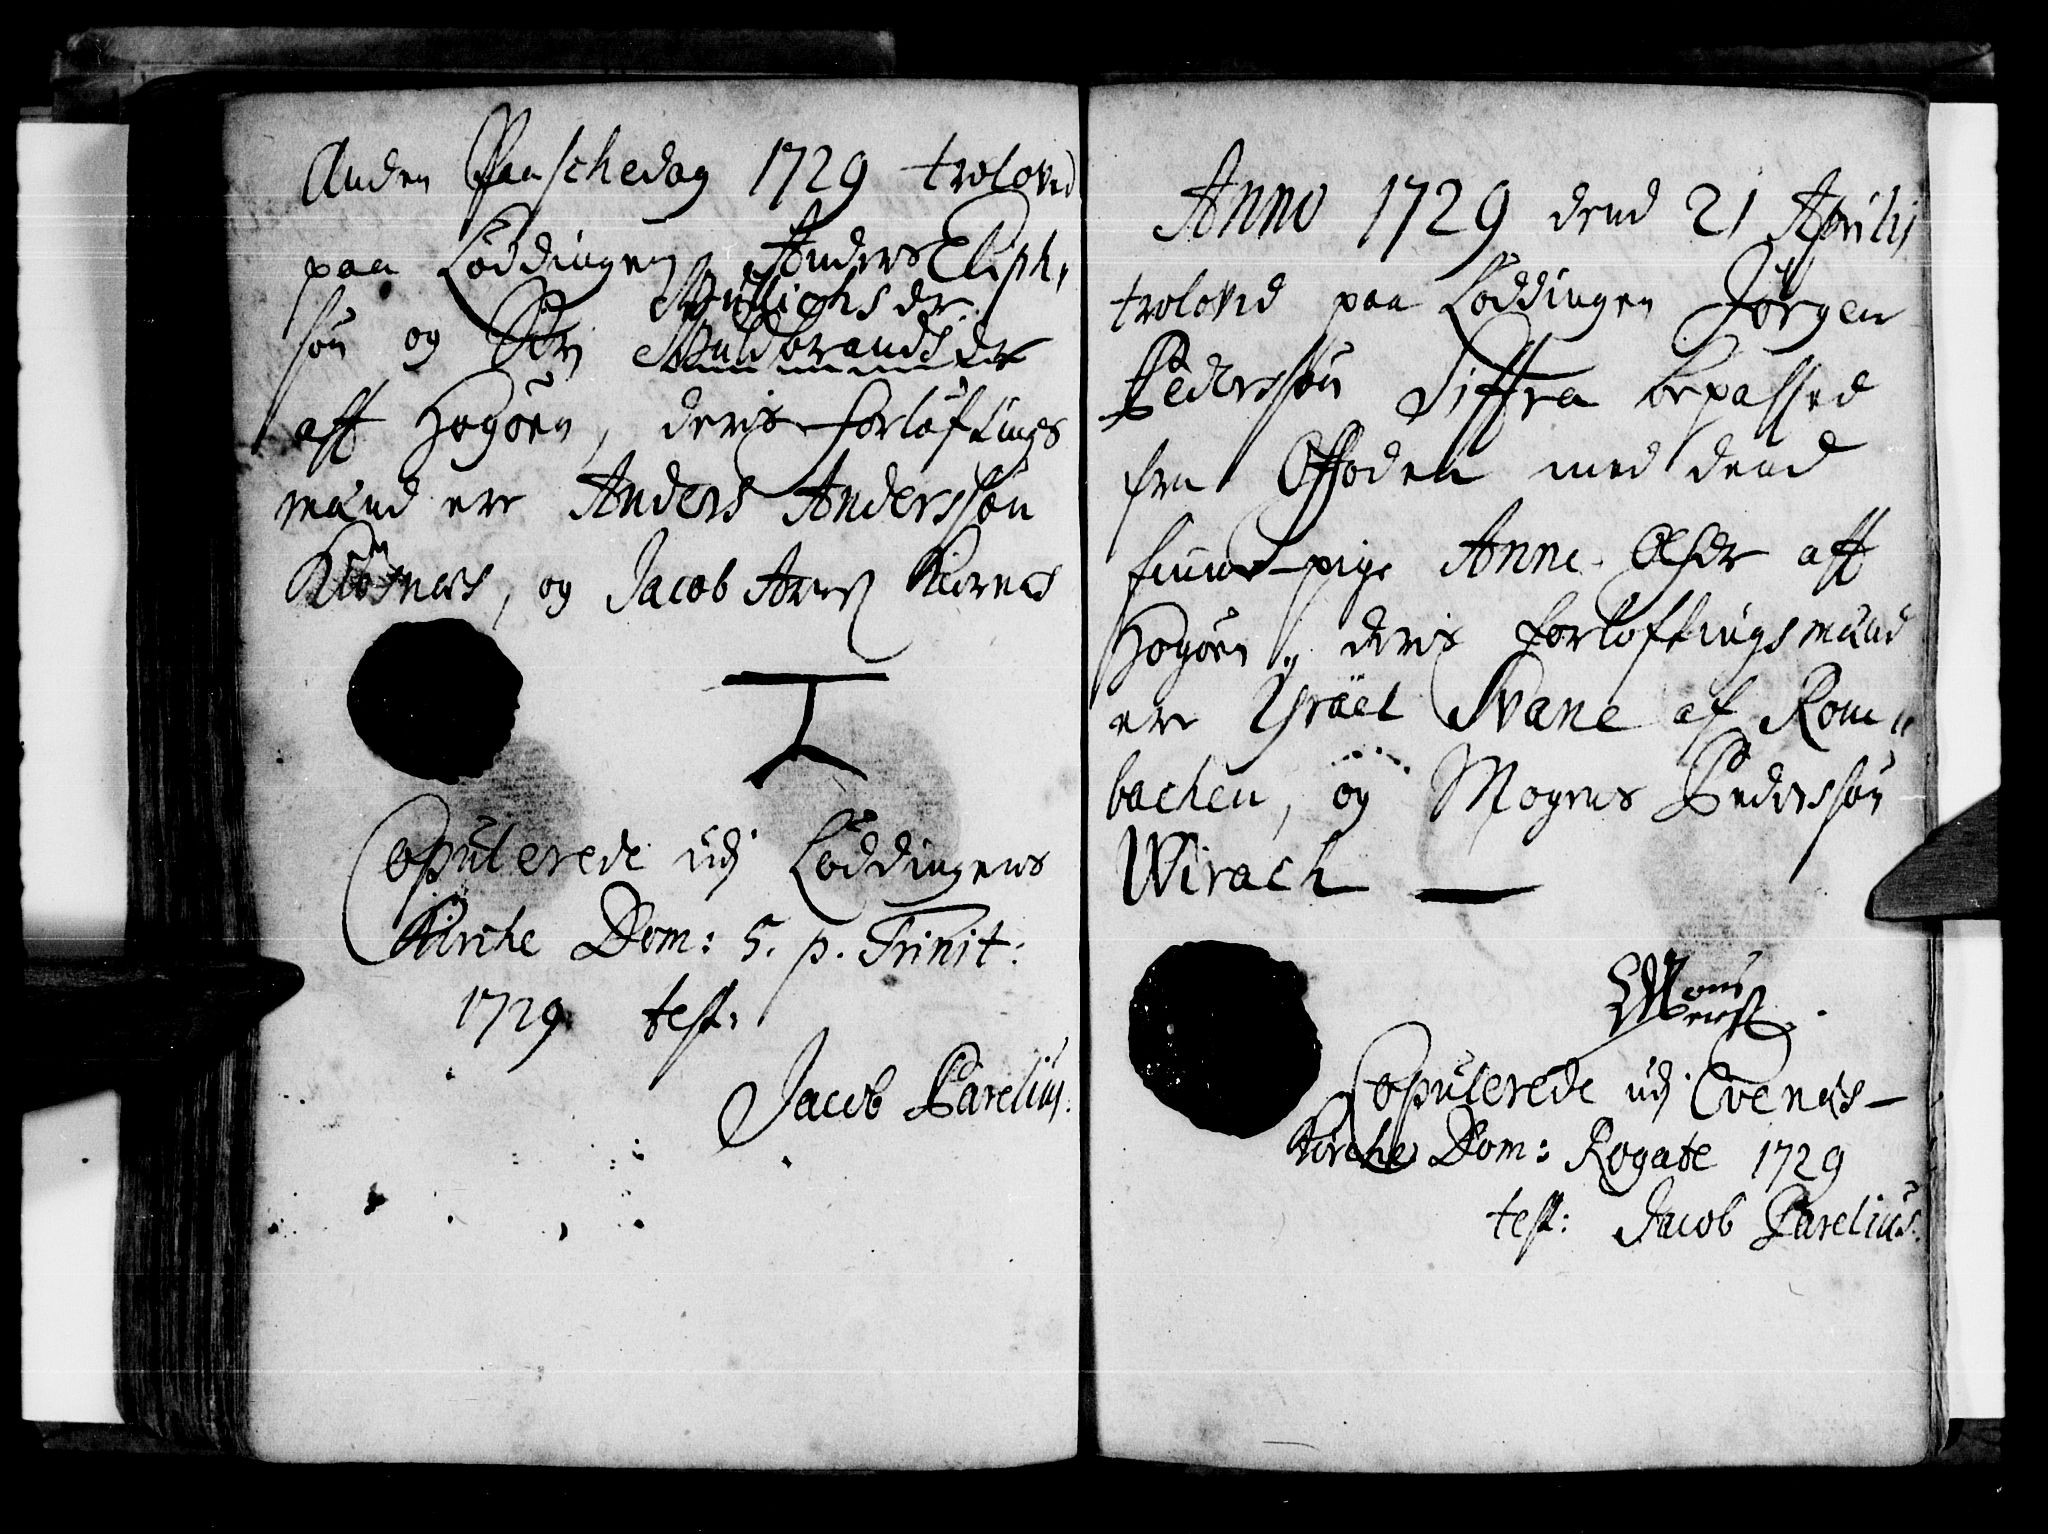 Anden Paaschedag 1729 trolovid
paa Løddingen Anders Eliph-
Mullichs dr.
søn og Siri Guldbrandsdr
aff Hogøen, deris forløftings
mænd ere Anders Anderssøn
og Jacob
Copulerede udj Løddingens
Kirche Dom: 5. p. Trinit:
1729 test:
Jacob Parelius.
Anno 1729 dend 21 Aprilis
trolovid paa Løddingen Jørgen
Pederssøn Siffra bepassed
fra Offoden med dend
finne-pige Anne Olsdr aff
Hogøen, deris forløftingsmænd
ere Ysräel Svane af Rom-
bachen, og Mogens Pederssøn
Wirach
Copulerede udj Evenæs-
Kirche Dom: Rogate 1729
test: Jacob Parelius.